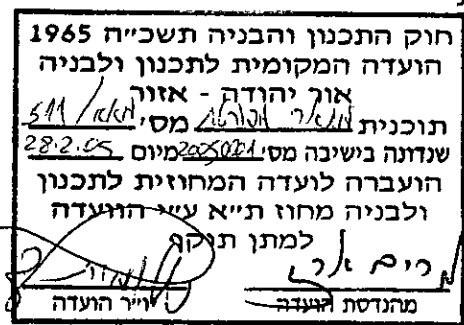 חוק התכנון והבניה תשכ״ה 1965
הועדה המקומית לתכנון ולבניה
אור יהודה - אזור
תוכנית מתאר מפורטת מס׳ מאא/511
שנדונה בישיבה מס׳ 2005001 מיום 28.2.05
הועברה לועדה המחוזית לתכנון
ולבניה מחוז ת״א ע״י הוועדה
למתן תוקף
מהנדסת הועדה
יו״ר הועדה